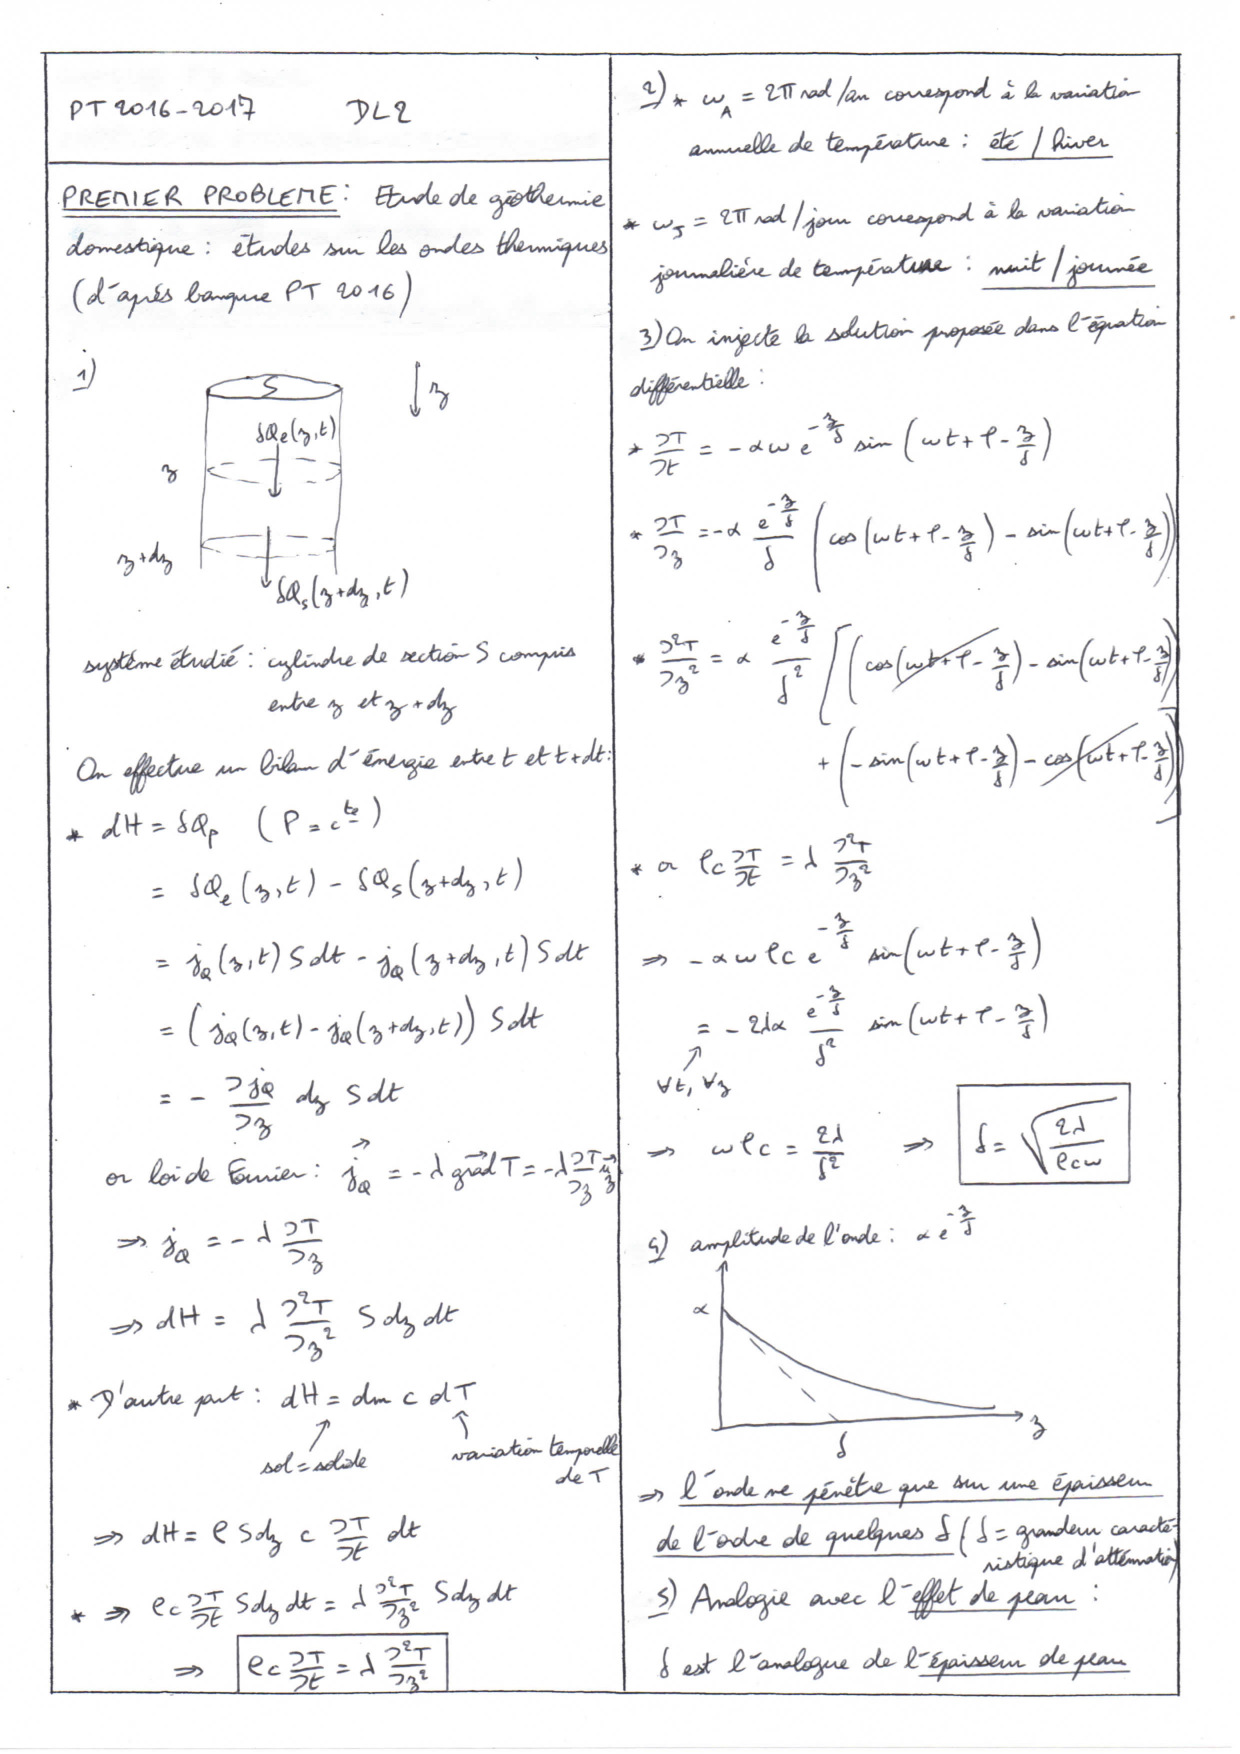 PT 2016-2017 DL2
PREMIER PROBLEME : Etude de géothermie
domestique : études sur les ondes thermiques
(d'après banque PT 2016)
1)
S
z
δQe(z,t)
z
z+dz
δQs(z+dz,t)
système étudié : cylindre de section S compris
entre z et z+dz
On effectue un bilan d'énergie entre t et t+dt :
* dH = δQp (P = cte)
= δQe(z,t) - δQs(z+dz,t)
= jQ(z,t) S dt - jQ(z+dz,t) S dt
= (jQ(z,t) - jQ(z+dz,t)) S dt
= - ∂jQ/∂z dz S dt
or loi de Fourier : →jQ = -λ →grad T = -λ ∂T/∂z →uz
⇒ jQ = -λ ∂T/∂z
⇒ dH = λ ∂²T/∂z² S dz dt
* D'autre part : dH = dm c dT
sol = solide
variation temporelle
de T
⇒ dH = ρ S dz c ∂T/∂t dt
* ⇒ ρc ∂T/∂t S dz dt = λ ∂²T/∂z² S dz dt
⇒ ρc ∂T/∂t = λ ∂²T/∂z²
2) * ωA = 2π rad/an correspond à la variation
annuelle de température : été / hiver
* ωJ = 2π rad/jour correspond à la variation
journalière de température : nuit / journée
3) On injecte la solution proposée dans l'équation
différentielle :
* ∂T/∂t = -αω e^(-z/δ) sin(ωt + φ - z/δ)
* ∂T/∂z = -α e^(-z/δ)/δ (cos(ωt + φ - z/δ) - sin(ωt + φ - z/δ))
* ∂²T/∂z² = α e^(-z/δ)/δ² [(cos(ωt + φ - z/δ) - sin(ωt + φ - z/δ))
+ (- sin(ωt + φ - z/δ) - cos(ωt + φ - z/δ))]
* or ρc ∂T/∂t = λ ∂²T/∂z²
⇒ -αωρc e^(-z/δ) sin(ωt + φ - z/δ)
= -2λα e^(-z/δ)/δ² sin(ωt + φ - z/δ)
∀t, ∀z
⇒ ωρc = 2λ/δ² ⇒ δ = √(2λ/ρcω)
4) amplitude de l'onde : α e^(-z/δ)
α
z
δ
⇒ l'onde ne pénètre que sur une épaisseur
de l'ordre de quelques δ (δ = grandeur caracté-
ristique d'atténuation)
5) Analogie avec l'effet de peau :
δ est l'analogue de l'épaisseur de peau